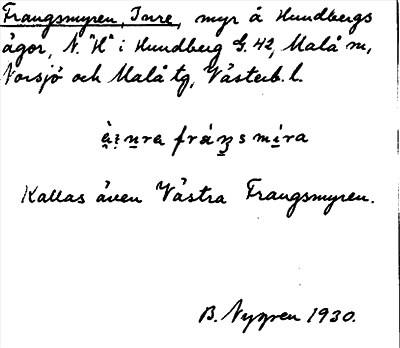 Frangsmyren, Inre, myr å Hundbergs
ägor, N. "H" i Hundberg G. 42, Malå sn,
Norsjö och Malå tg, Västerb. l.
frángsmira
Kallas även Västra Frangsmyren.
B. Nygren 1930.